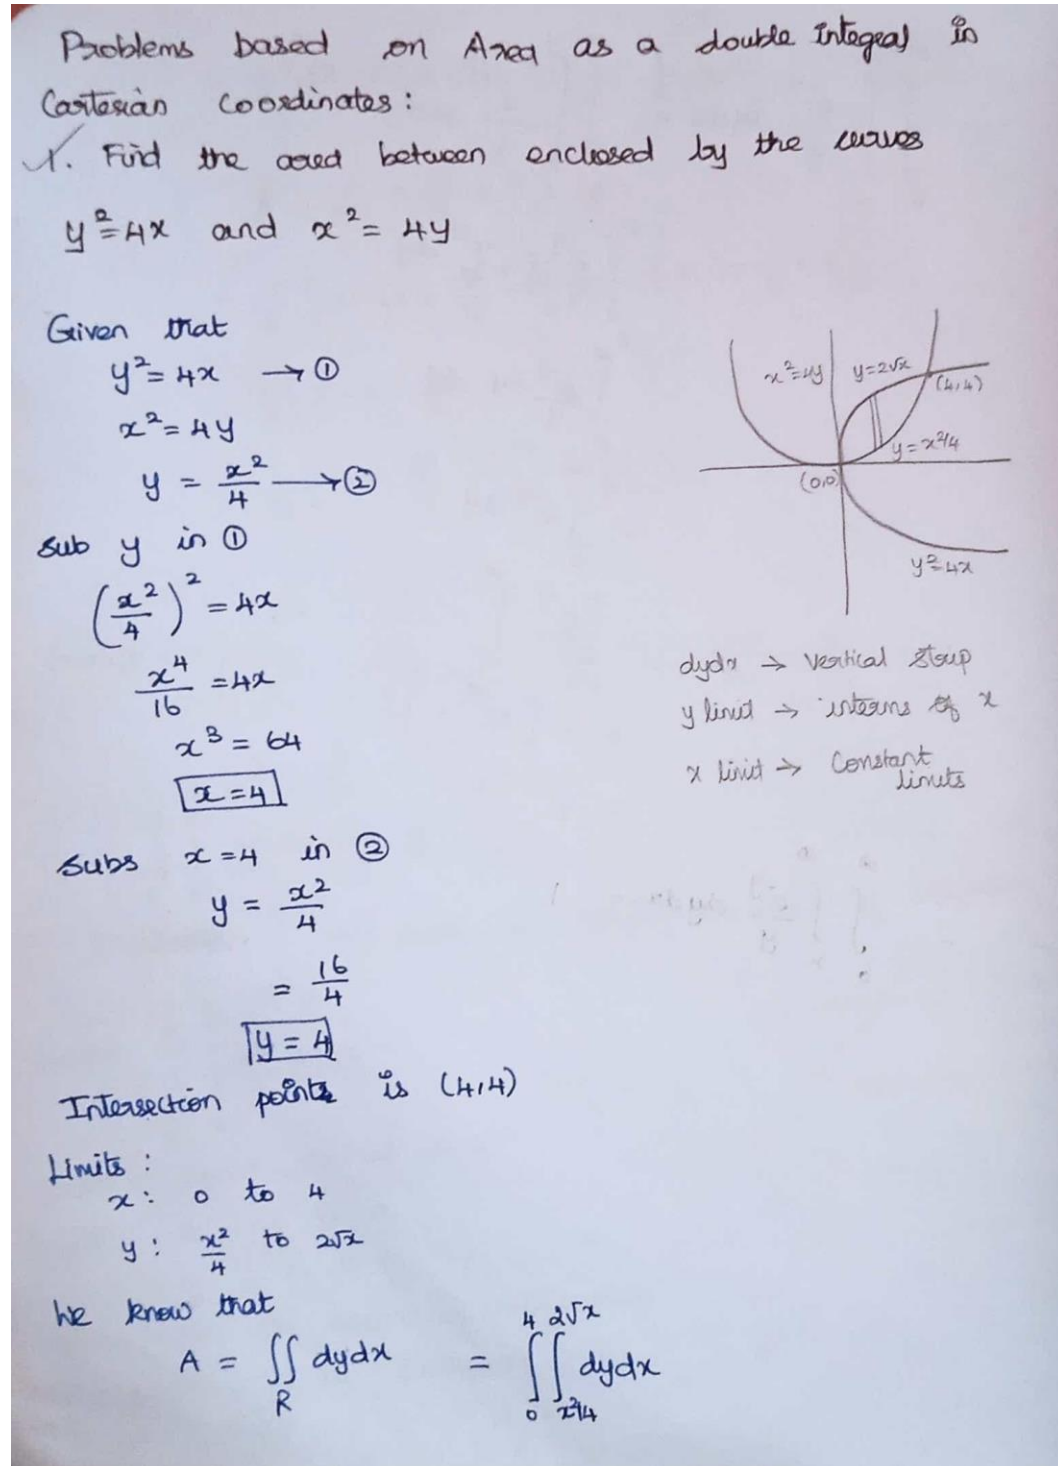 Problems based on Area as a double Integral in
Cartesian Coordinates:
1. Find the area between enclosed by the curves
y²=4x and x²=4y
Given that
y²=4x → ①
x²=4y
y = x²/4 → ②
Sub y in ①
(x²/4)² = 4x
x⁴/16 = 4x
x³ = 64
x=4
Subs x=4 in ②
y = x²/4
= 16/4
y=4
Intersection points is (4,4)
Limits:
x: 0 to 4
y: x²/4 to 2√x
We know that
A = ∬_R dydx = ∫_0^4 ∫_{x²/4}^{2√x} dydx
x²=4y
y=2√x
(4,4)
y=x²/4
(0,0)
y²=4x
dydx → Vertical Strip
y limit → interms of x
x limit → Constant
limits